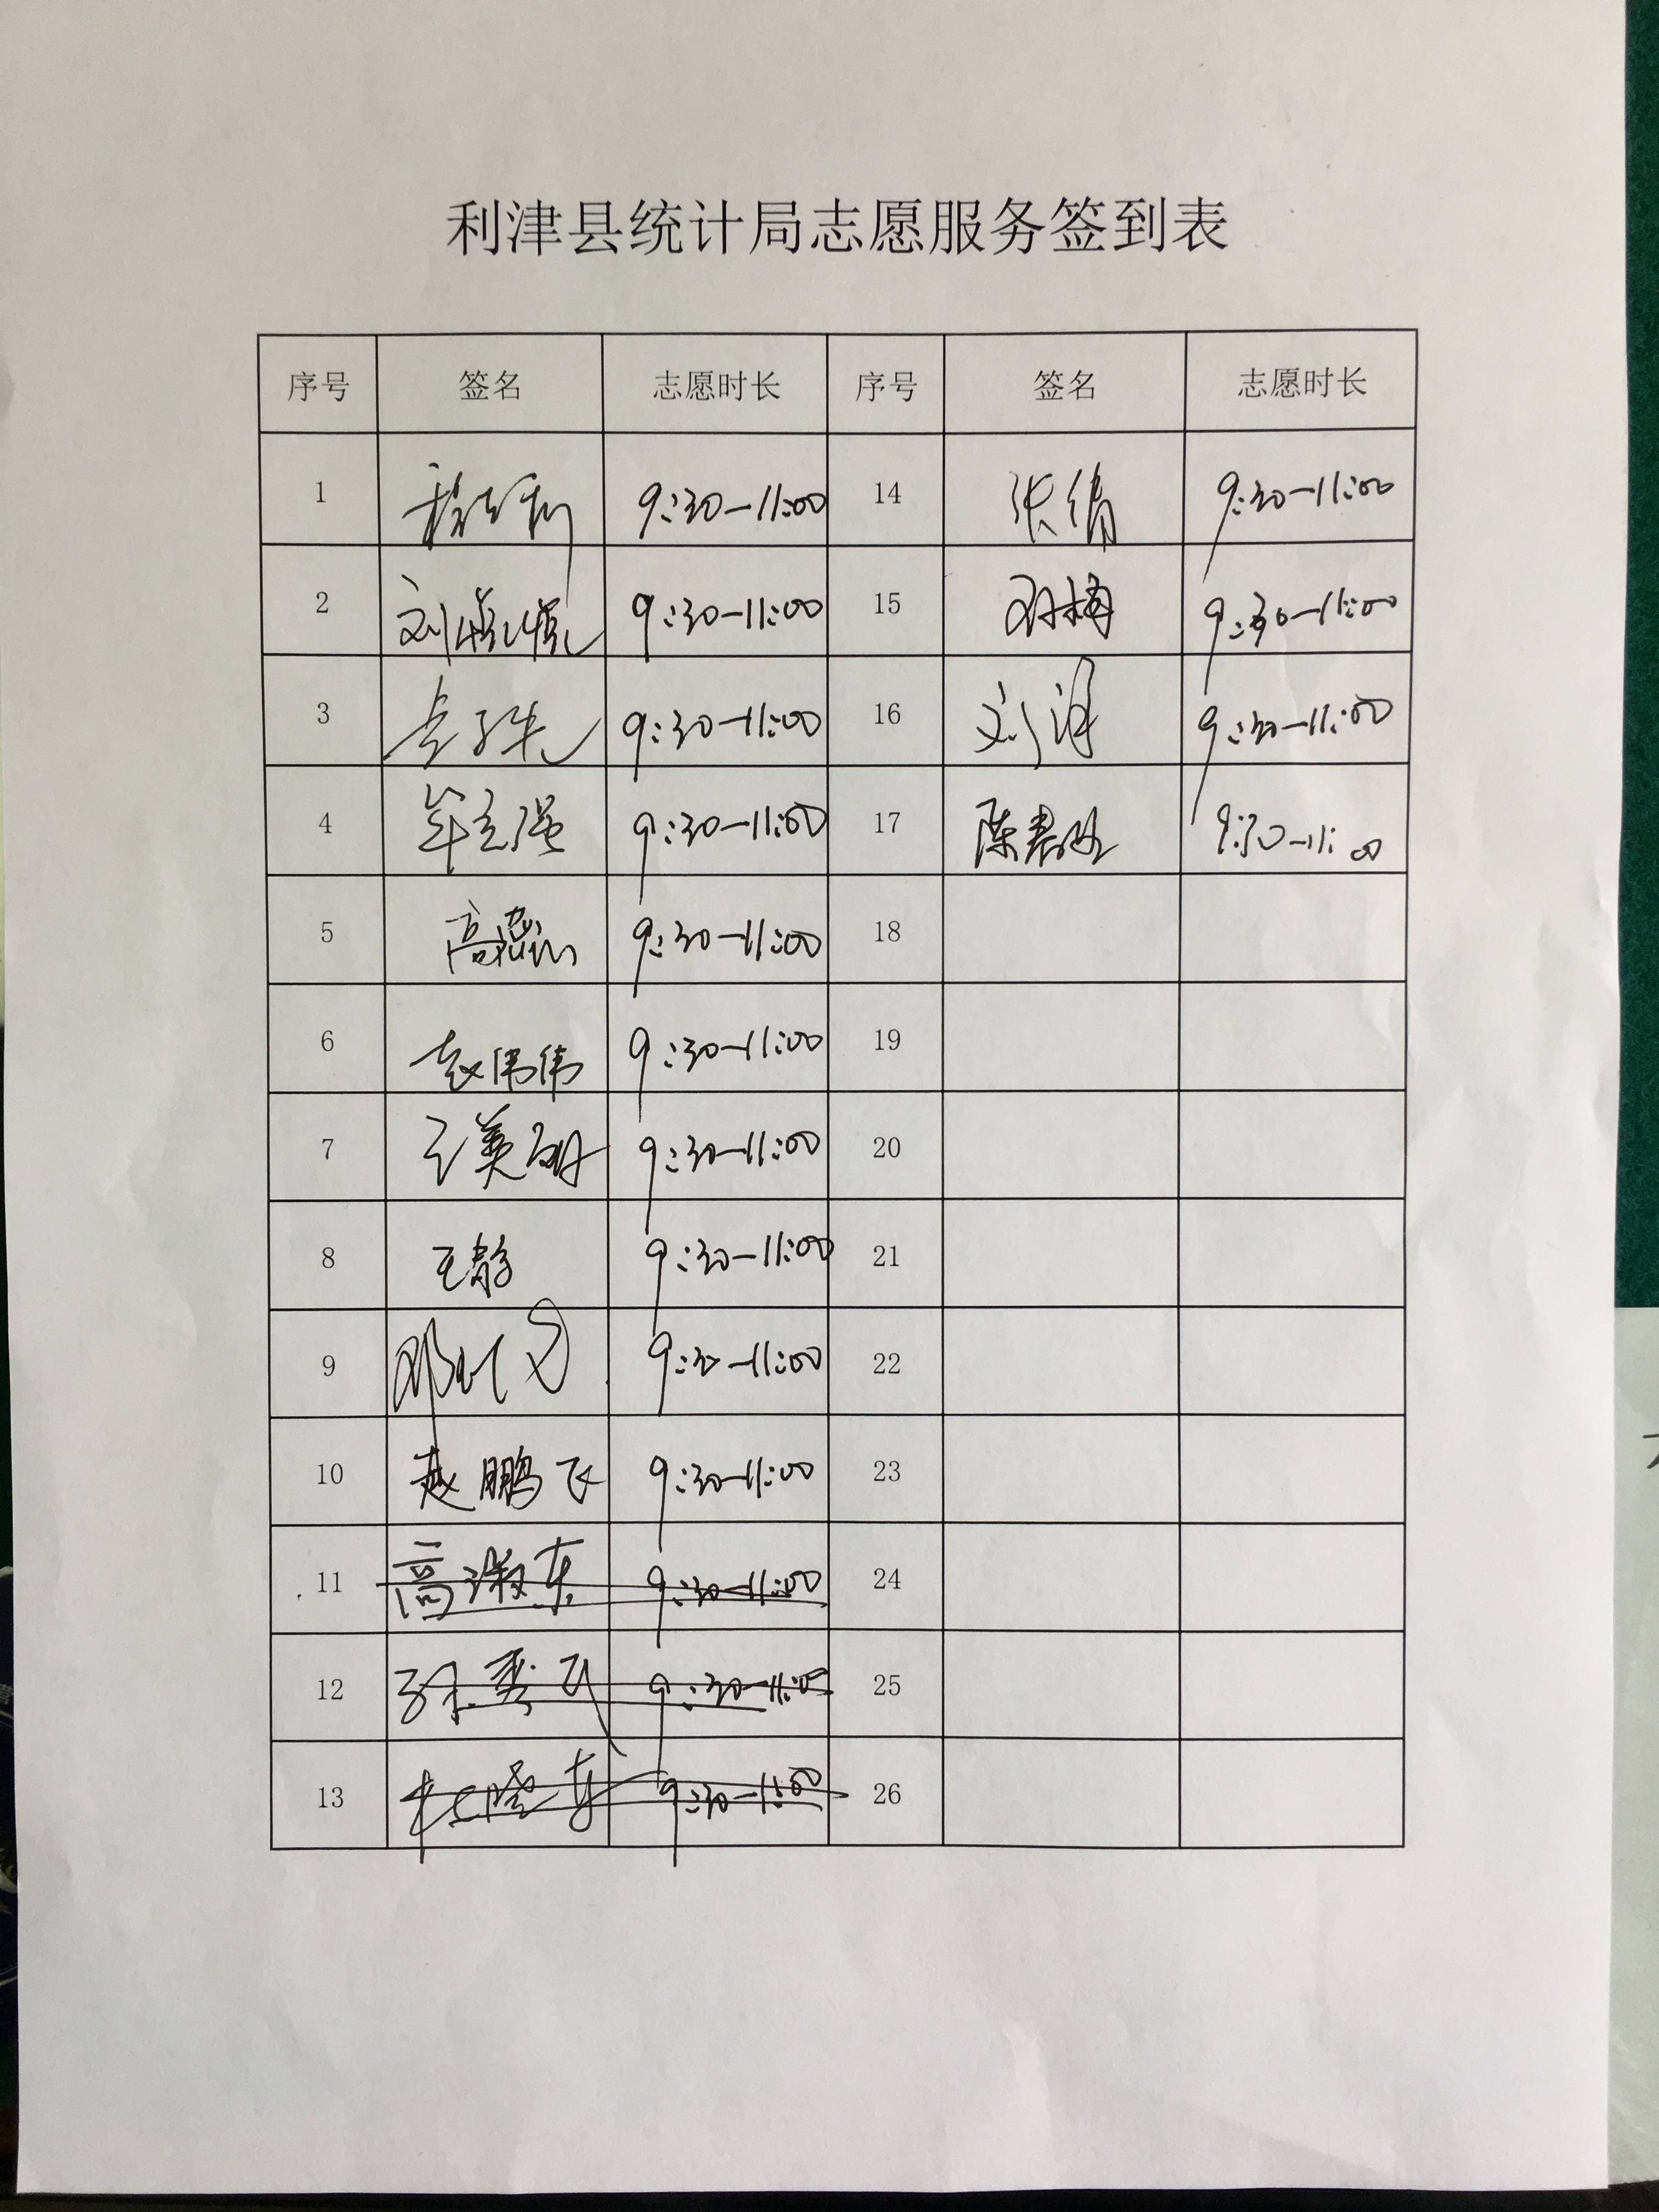 利津县统计局志愿服务签到表
序号 签名 志愿时长 序号 签名 志愿时长
1 9:30-11:00 14 张倩 9:30-11:00
2 9:30-11:00 15 孙梅 9:30-11:00
3 9:30-11:00 16 刘 9:30-11:00
4 9:30-11:00 17 陈君 9:30-11:00
5 高燕 9:30-11:00 18
6 伟伟 9:30-11:00 19
7 王美丽 9:30-11:00 20
8 王静 9:30-11:00 21
9 9:30-11:00 22
10 赵鹏飞 9:30-11:00 23
11 高淑东 9:30-11:00 24
12 9:30-11:00 25
13 杜晓东 9:30-11:00 26